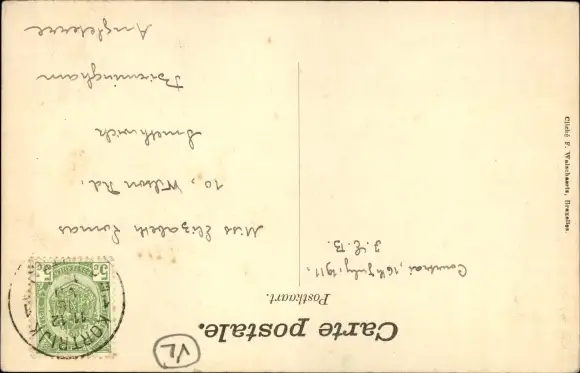 Carte postale.
Postkaart.
Courtrai, 16th July, 1911.
J. E. B.
Miss Elizabeth Lomas
10, Wilson Rd.
Smethwick
Birmingham
Angleterre
KORTRIJK
11-12
5c
5c
VL
Cliché F. Walschaerts, Bruxelles.